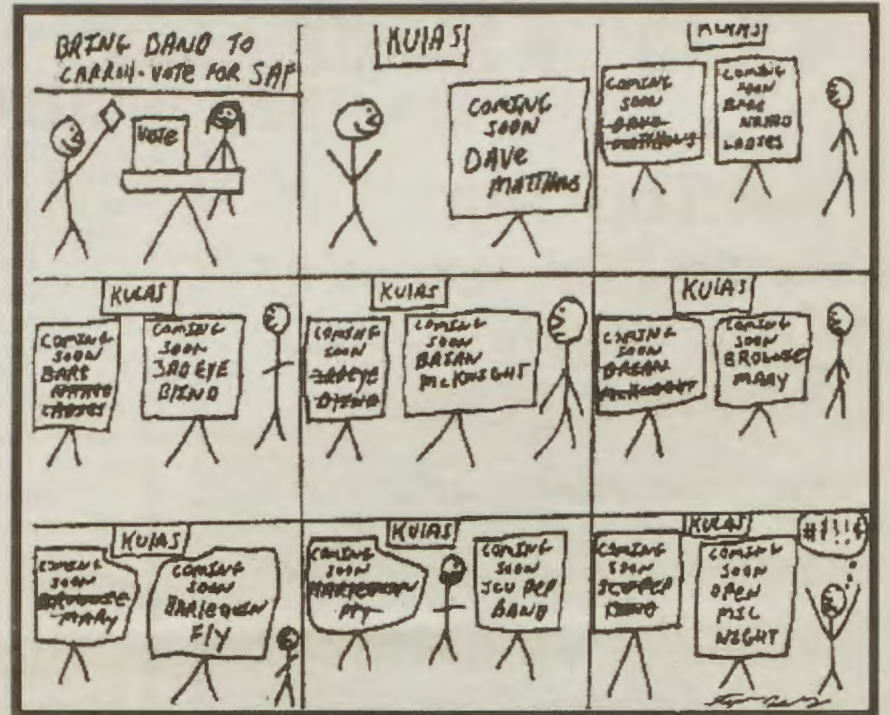 BRING BAND TO
CARROLL - VOTE FOR SAF
VOTE
KULAS
COMING
SOON
DAVE
MATTHEWS
KULAS
COMING
SOON
DAVE
MATTHEWS
COMING
SOON
BARE
NAKED
LADIES
KULAS
COMING
SOON
BARE
NAKED
LADIES
COMING
SOON
3RD EYE
BLIND
KULAS
COMING
SOON
3RD EYE
BLIND
COMING
SOON
BRIAN
McKNIGHT
KULAS
COMING
SOON
BRIAN
McKNIGHT
COMING
SOON
BROWNIE
MARY
KULAS
COMING
SOON
BROWNIE
MARY
COMING
SOON
HARLEQUIN
FLY
KULAS
COMING
SOON
HARLEQUIN
FLY
COMING
SOON
JCU PEP
BAND
KULAS
COMING
SOON
JCU PEP
BAND
COMING
SOON
OPEN
MIC
NIGHT